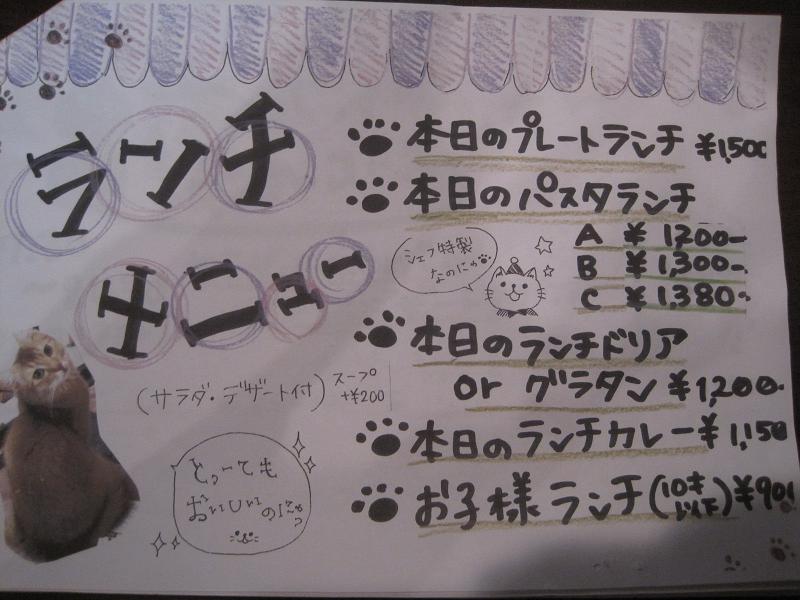 ランチ
メニュー
(サラダ・デザート付)
スープ
+¥200
とっても
おいしいのにゃ
本日のプレートランチ ¥1,500
本日のパスタランチ
A ¥1,200-
B ¥1,300-
C ¥1,380-
シェフ特製
なのにゃ
本日のランチドリア
or グラタン ¥1,200-
本日のランチカレー ¥1,150
お子様ランチ(10才以下)¥90